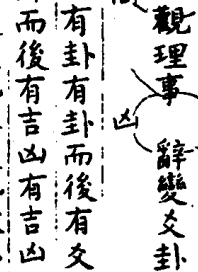 觀理事
凶
辭變爻卦
有卦有卦而後有爻
而後有吉凶有吉凶